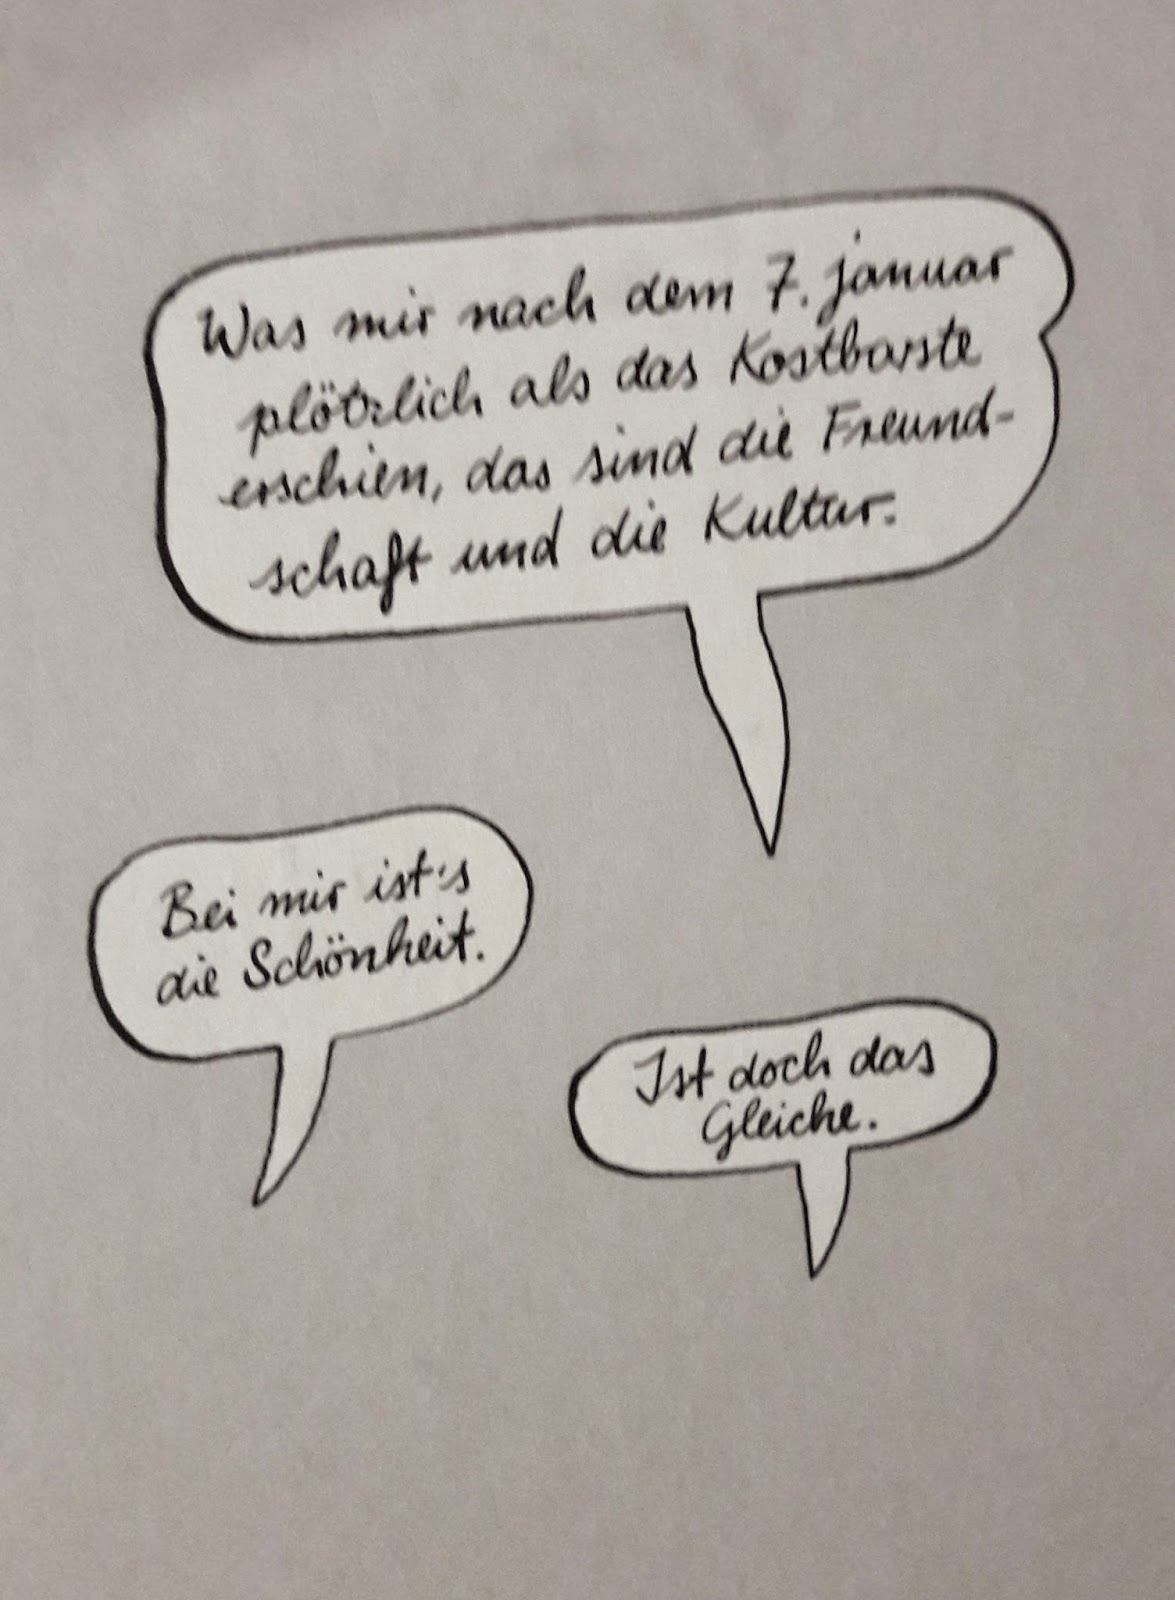 Was mir nach dem 7. Januar
plötzlich als das Kostbarste
erschien, das sind die Freund-
schaft und die Kultur.
Bei mir ist's
die Schönheit.
Ist doch das
Gleiche.